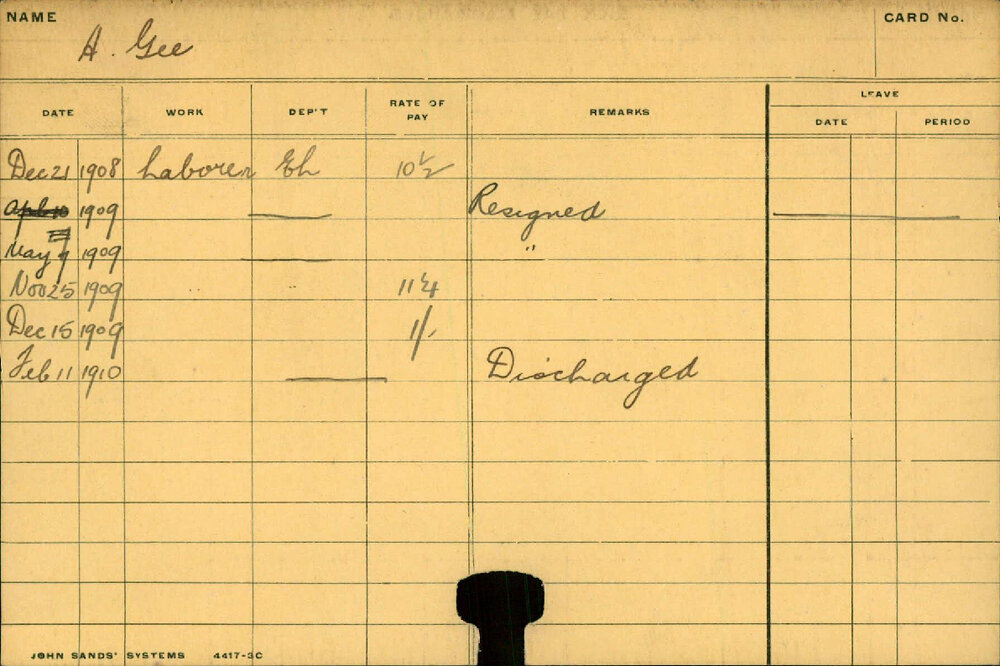 NAME CARD No.
A. Gee
DATE WORK DEP'T RATE OF PAY REMARKS LEAVE DATE PERIOD
Dec 21 1908 Laborer Eh 10½
1909 Resigned
May 7 1909 "
Nov 25 1909 11¼
Dec 15 1909 1/-
Feb 11 1910 Discharged
JOHN SANDS' SYSTEMS 4417-3C